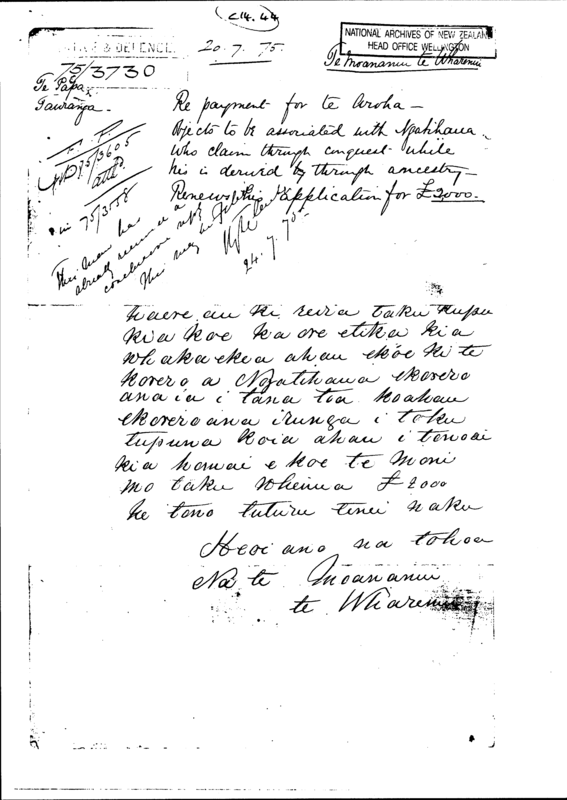 C14.44
NATIONAL ARCHIVES OF NEW ZEALAND
HEAD OFFICE WELLINGTON
& DEFENCE
20.7.75.
Te Moananui te Wharenui
75/3730
Te Papa
Tauranga.
Re payment for te Aroha —
Objects to be associated with Ngatihaua
who claim through conquest while
his is derived by through ancestry —
Renews his application for £2000.
75/3605
in 75/3558
This man has
already received a
This may
24.7.75
haere au ki reira taku kupu
kia koe ka ore etika kia
whakaekea ahau ekoe ki te
korero a Ngatihaua ekorero
ana ia i tana toa ko ahau
ekorero ana irunga i toku
tupuna koia ahau i tonoai
kia homai e koe te moni
mo taku whenua £2000
he tono tuturu tenei naku
Heoi ano na to hoa
Na te Moananui
te Wharenui